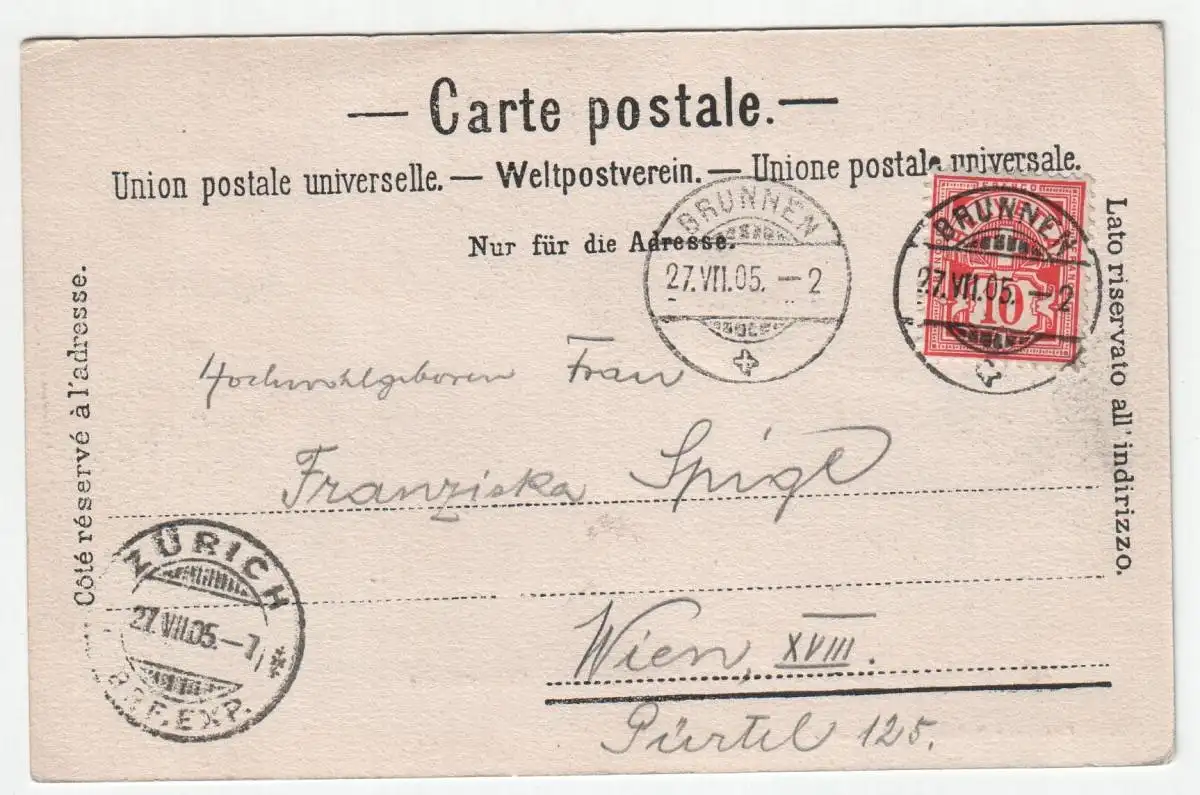 — Carte postale. —
Union postale universelle. — Weltpostverein. — Unione postale universale.
Nur für die Adresse.
Côté réservé à l'adresse.
Lato riservato all'indirizzo.
BRUNNEN
27.VII.05. – 2
BRUNNEN
27.VII.05. – 2
10
Hochwohlgeboren Frau
Franziska Spigl
Wien, XVIII.
Pürtel 125.
ZÜRICH
27.VII.05. – 7
BRF. EXP.